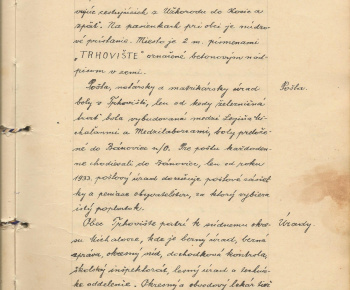 cestujúcich z Užhorodu do Košíc a
späť. Na pasienkach pri obci je núdzo-
vé pristanie. Miesto je 2 m. písmenami
„TRHOVIŠTE" označené betonovým nád-
pisom v zemi.
Pošta, notársky a matrikársky úrad Pošta.
boly v Trhovišti, len od kedy železničná
trať bola vybudovaná medzi
chalanmi a Medzilaborcami, boly prelože-
né do Bánoviec n/O. Pre poštu každoden-
ne chodievali do Bánoviec, len od roku
1933. poštový úrad doručuje poštové zásiel-
ky a peniaze obyvateľstvu, za ktorý vyberie
istý poplatok.
Obec Trhovište patrí k súdnemu okre- Úrady.
su Michalovce, kde je berný úrad, berná
správa, okresný súd, dôchodková kontrola,
školský inšpektorát, lesný úrad a technic-
ké oddelenie. Okresný a obvodový lekár tiež